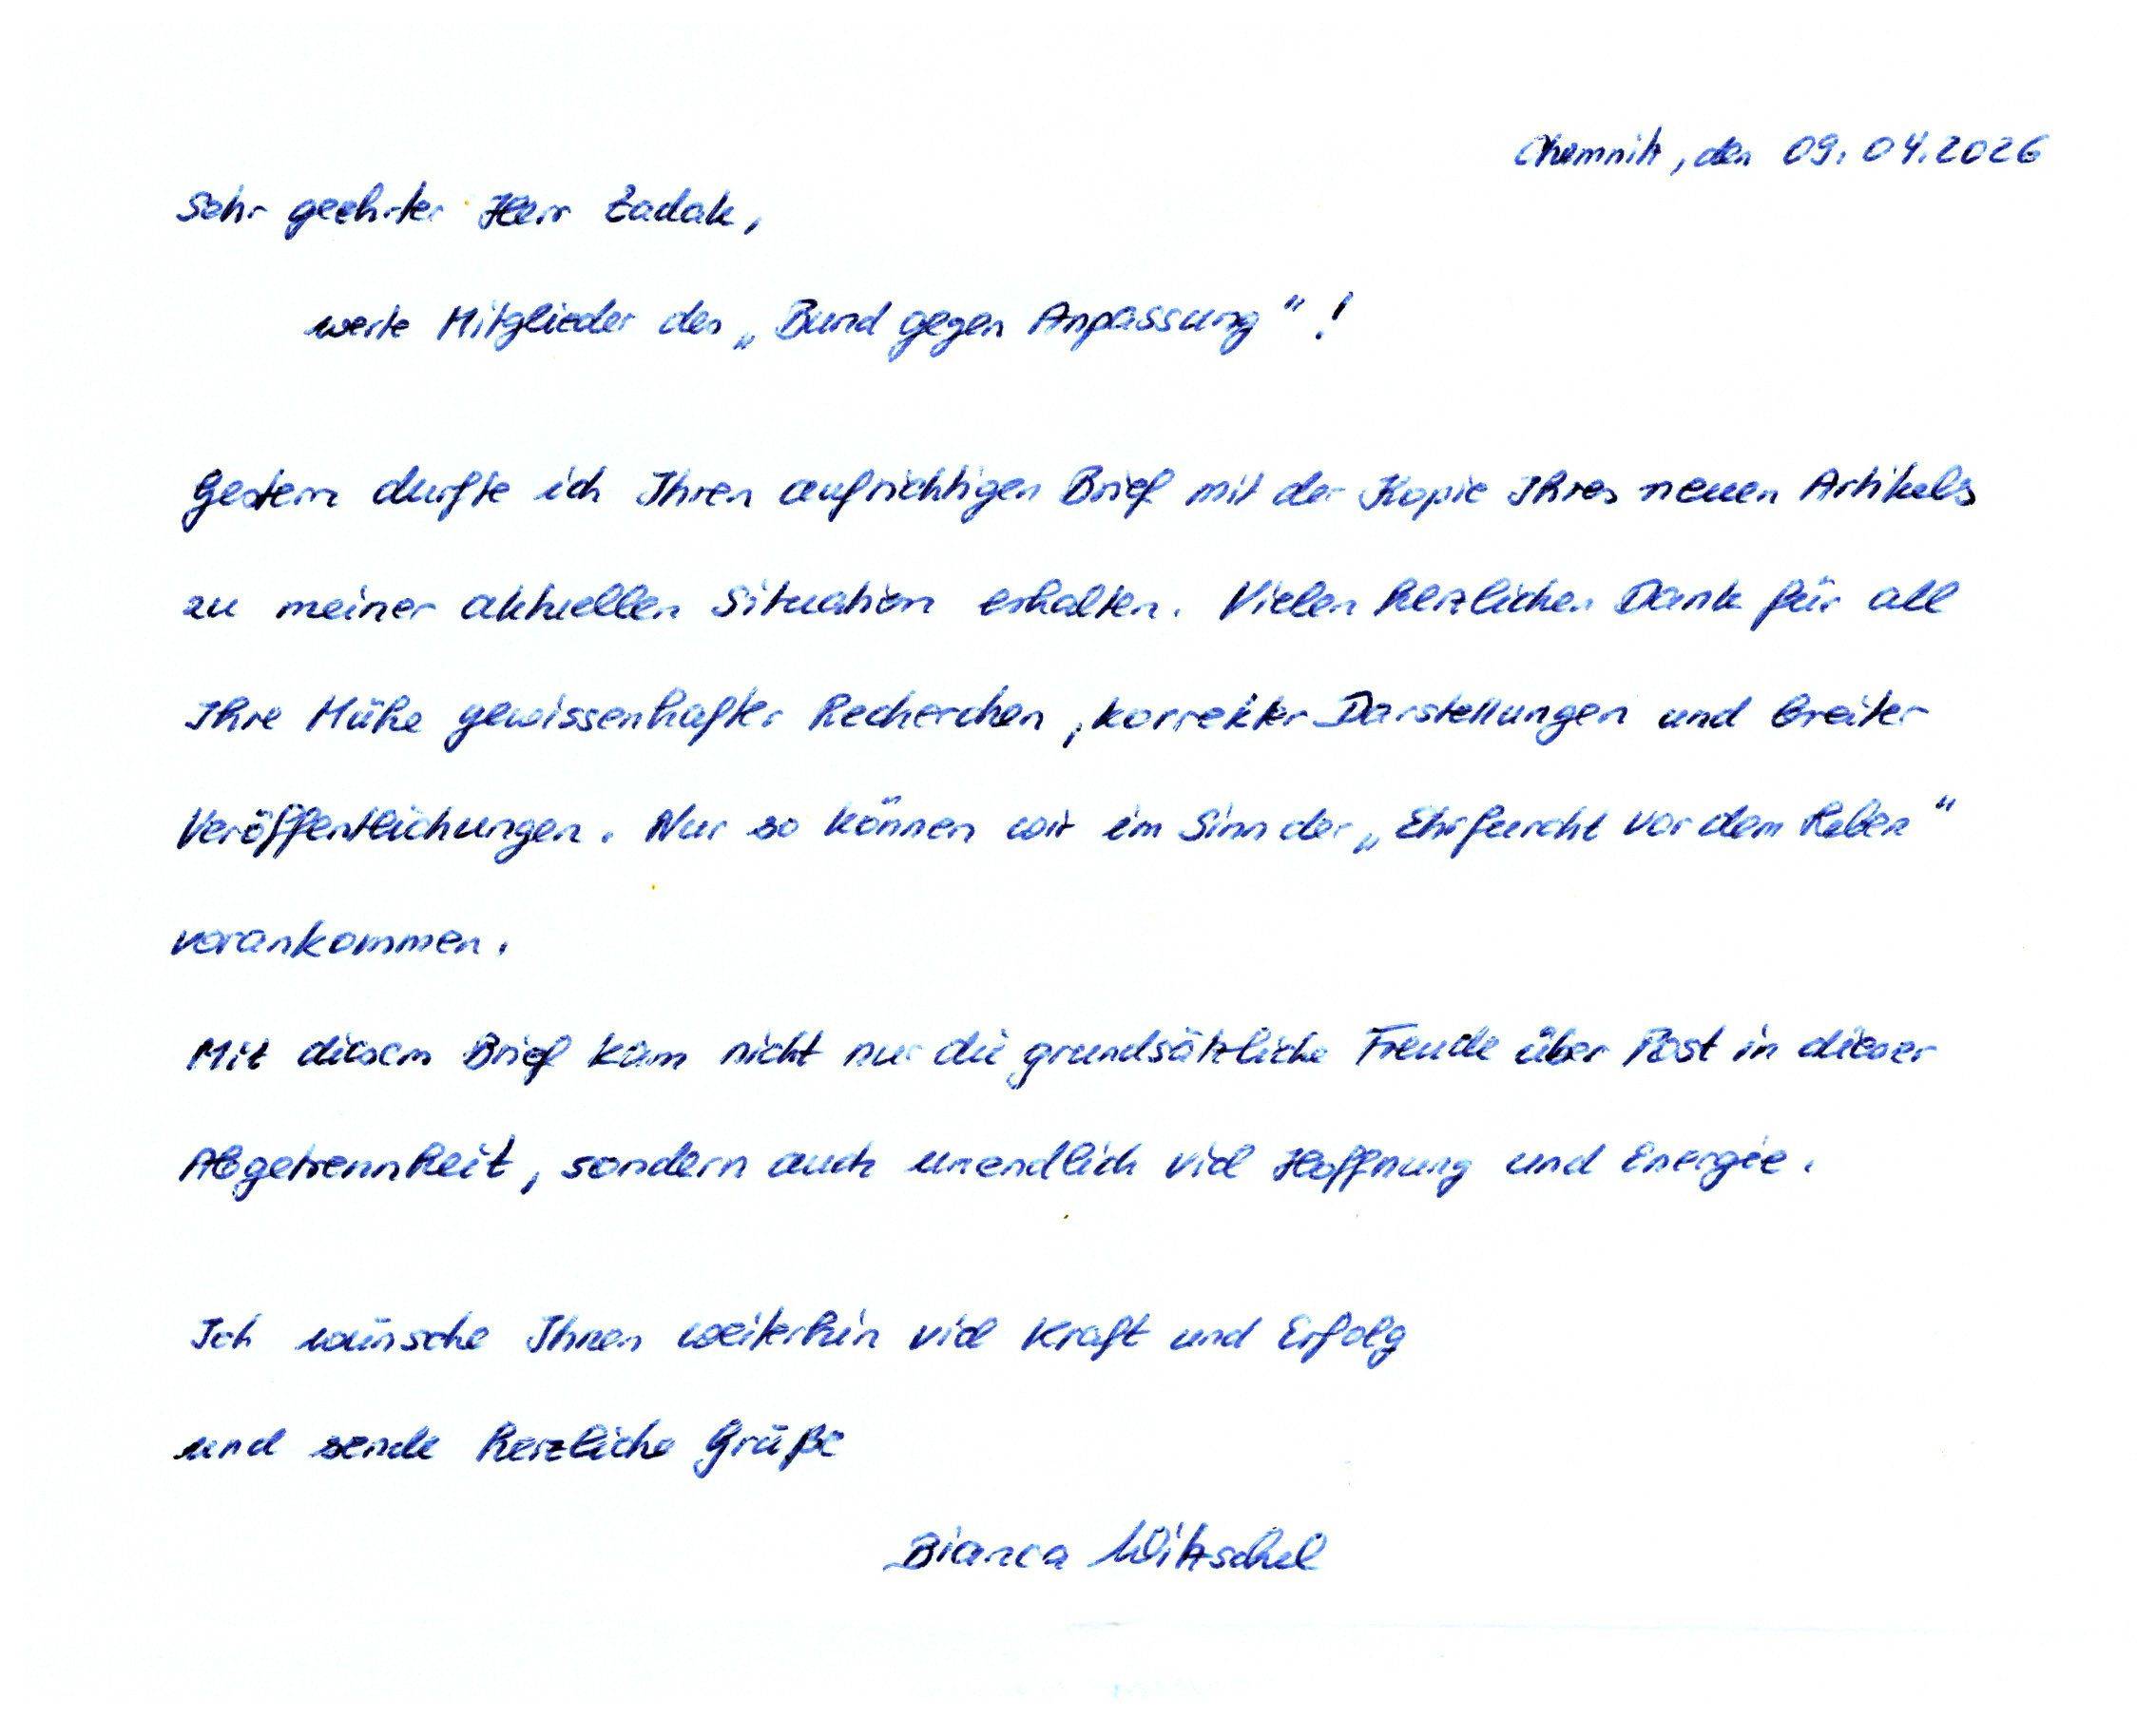 Chemnitz, den 09.04.2026
Sehr geehrter Herr Zadak,
werte Mitglieder des „Bund gegen Anpassung“!
Gestern durfte ich Ihren aufrichtigen Brief mit der Kopie Ihres neuen Artikels
zu meiner aktuellen Situation erhalten. Vielen herzlichen Dank für all
Ihre Mühe gewissenhafter Recherchen, korrekter Darstellungen und breiter
Veröffentlichungen. Nur so können wir im Sinn der „Ehrfurcht vor dem Leben“
vorankommen.
Mit diesem Brief kam nicht nur die grundsätzliche Freude über Post in dieser
Abgetrenntheit, sondern auch unendlich viel Hoffnung und Energie.
Ich wünsche Ihnen weiterhin viel Kraft und Erfolg
und sende herzliche Grüße
Bianca Witzschel